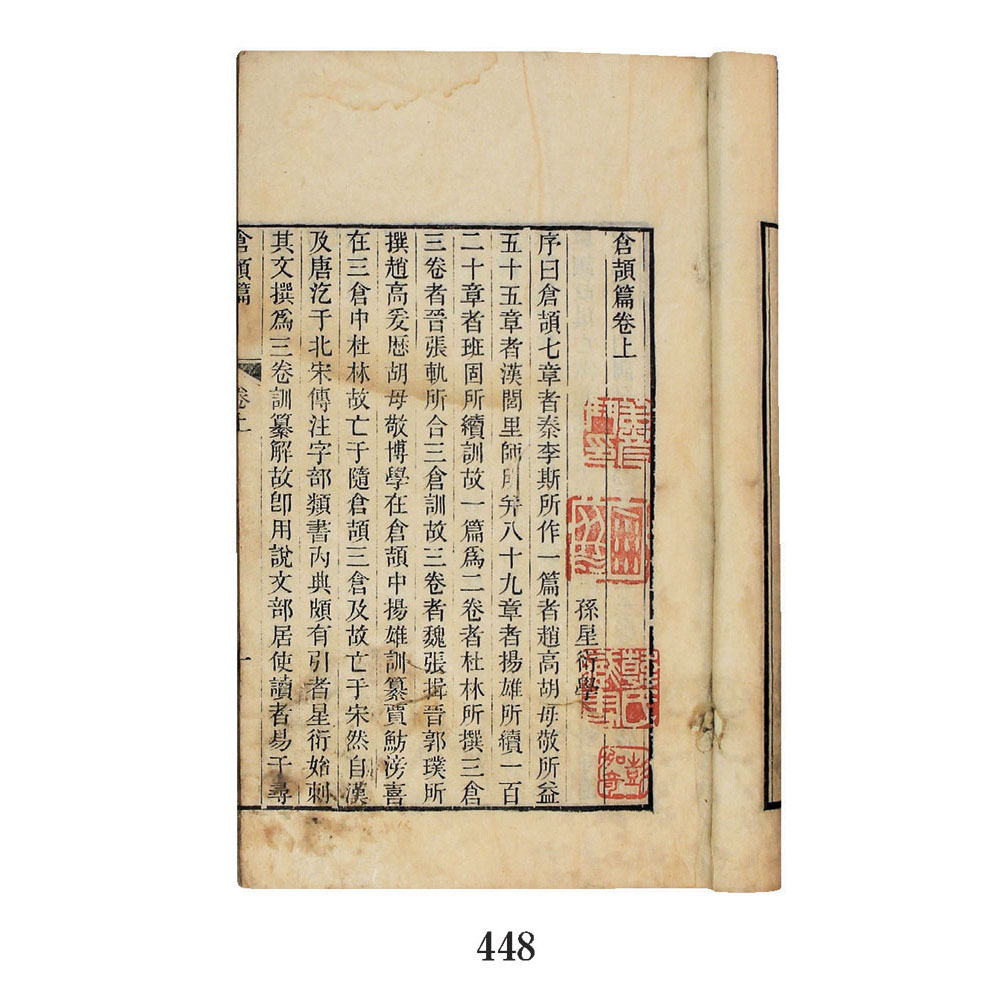 倉頡篇卷上
孫星衍學
序曰倉頡七章者秦李斯所作一篇者趙高胡母敬所益
五十五章者漢閭里師所并八十九章者揚雄所續一百
二十章者班固所續訓故一篇爲二卷者杜林所撰三倉
三卷者晉張軌所合三倉訓故三卷者魏張揖晉郭璞所
撰趙高爰歷胡母敬博學在倉頡中揚雄訓纂賈魴滂喜
在三倉中杜林故亡于隨倉頡三倉及故亡于宋然自漢
及唐汔于北宋傳注字部類書內典頗有引者星衍始刺
其文撰爲三卷訓纂解故卽用說文部居使讀者易于尋
倉頡篇 卷上 一
448